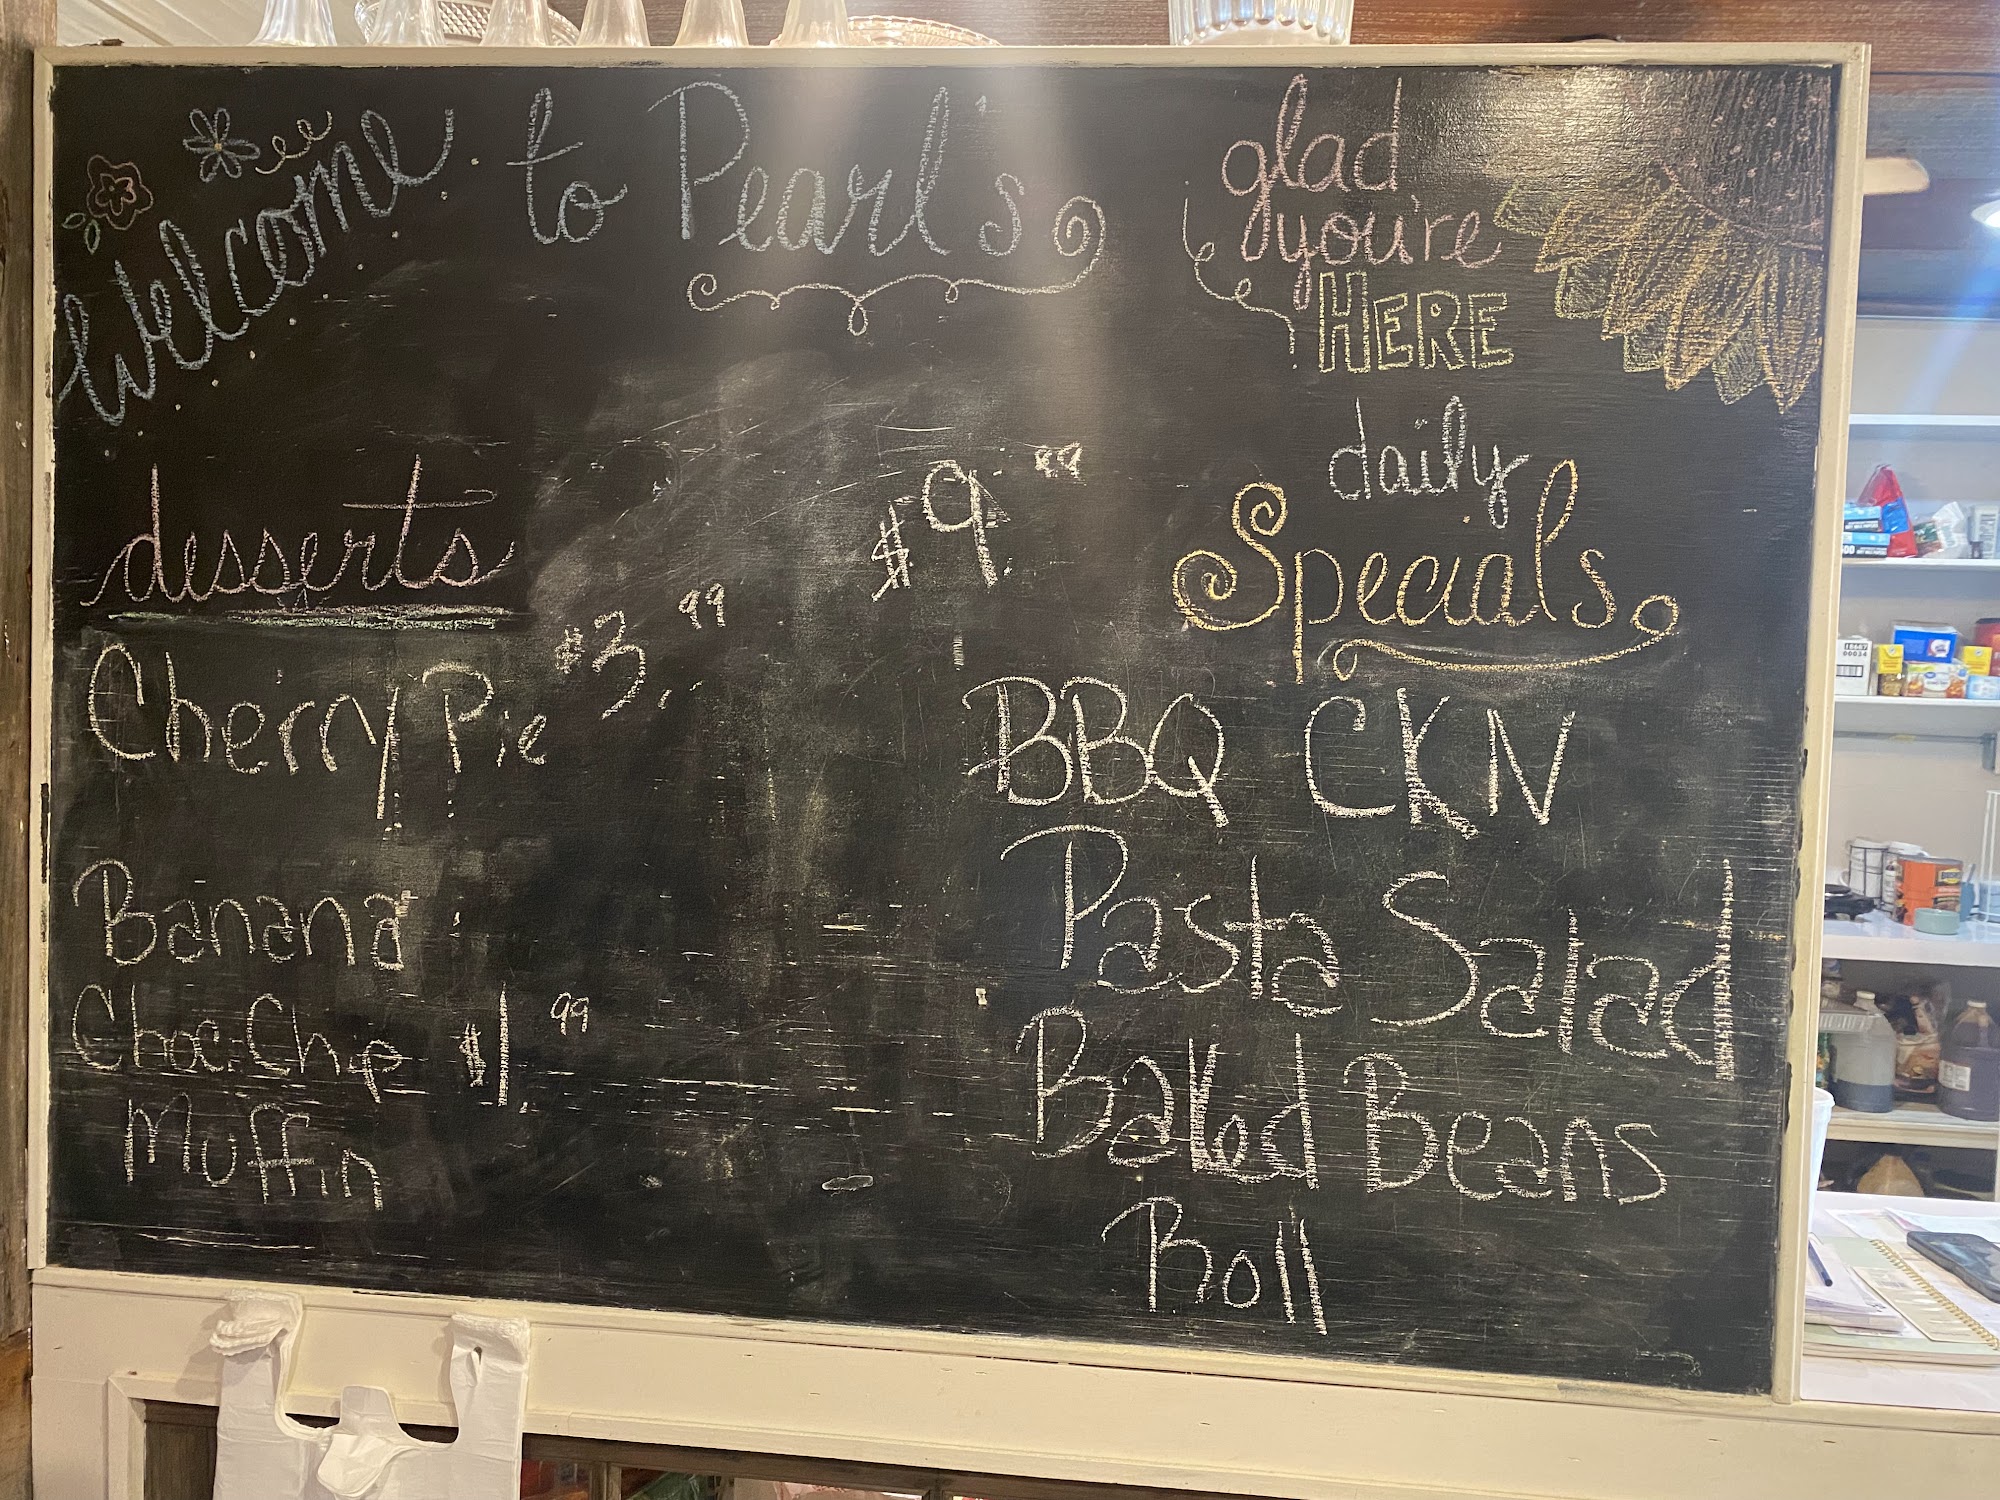 Welcome to Pearl's
glad
you're
HERE
desserts
Cherry Pie $3.99
Banana
Choc. Chip $1.99
Muffin
daily
Specials
$9.99
BBQ CKN
Pasta Salad
Baked Beans
Roll